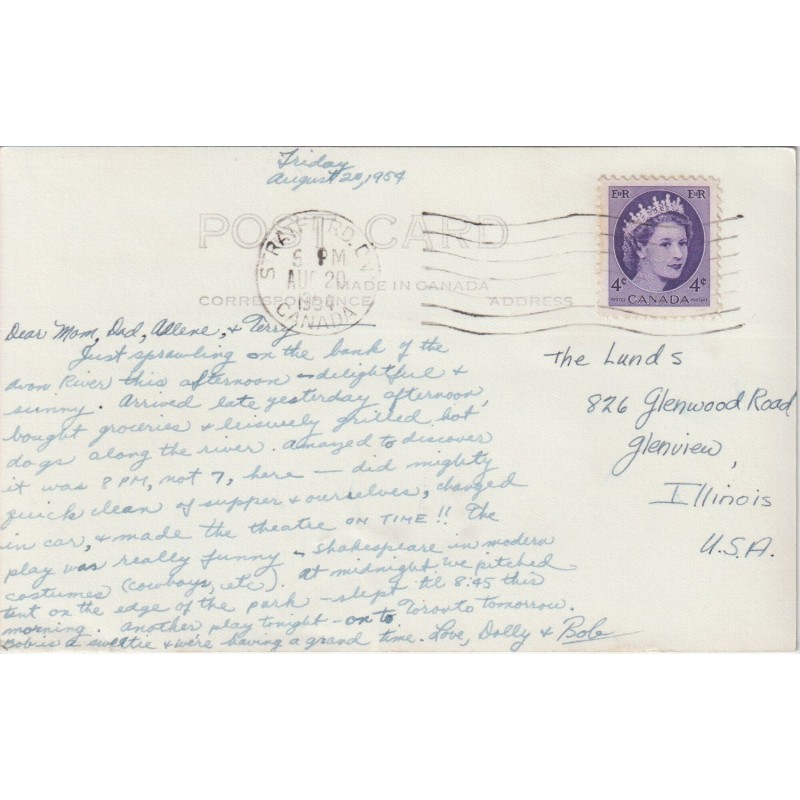 Friday
August 20, 1954
POST CARD
STRATFORD, ONT.
5 PM
AUG 20
1954
CANADA
MADE IN CANADA
CORRESPONDENCE
ADDRESS
EIIR EIIR
4¢ 4¢
POSTES CANADA POSTAGE
Dear Mom, Dad, Allene, & Terry
Just sprawling on the bank of the
Avon River this afternoon - delightful &
sunny. Arrived late yesterday afternoon,
bought groceries & leisurely grilled hot
dogs along the river. Amazed to discover
it was 8 PM, not 7, here — did mighty
quick clean of supper & ourselves, changed
in car, & made the theatre ON TIME!! The
play was really funny - Shakespeare in modern
costumes (cowboys, etc). At midnight we pitched
tent on the edge of the park - slept til 8:45 this
morning. Another play tonight - on to Toronto tomorrow.
Bob is a sweetie & we're having a grand time. Love, Dolly & Bob
The Lunds
826 Glenwood Road
Glenview,
Illinois
U.S.A.